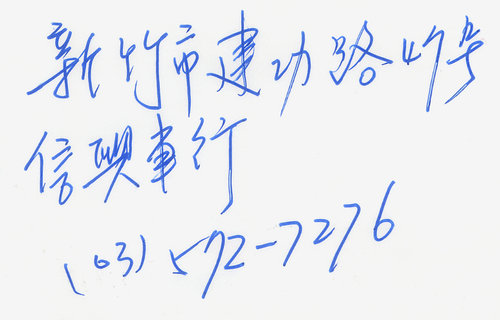 新竹市建功路47号
信興車行
(03) 572-7276